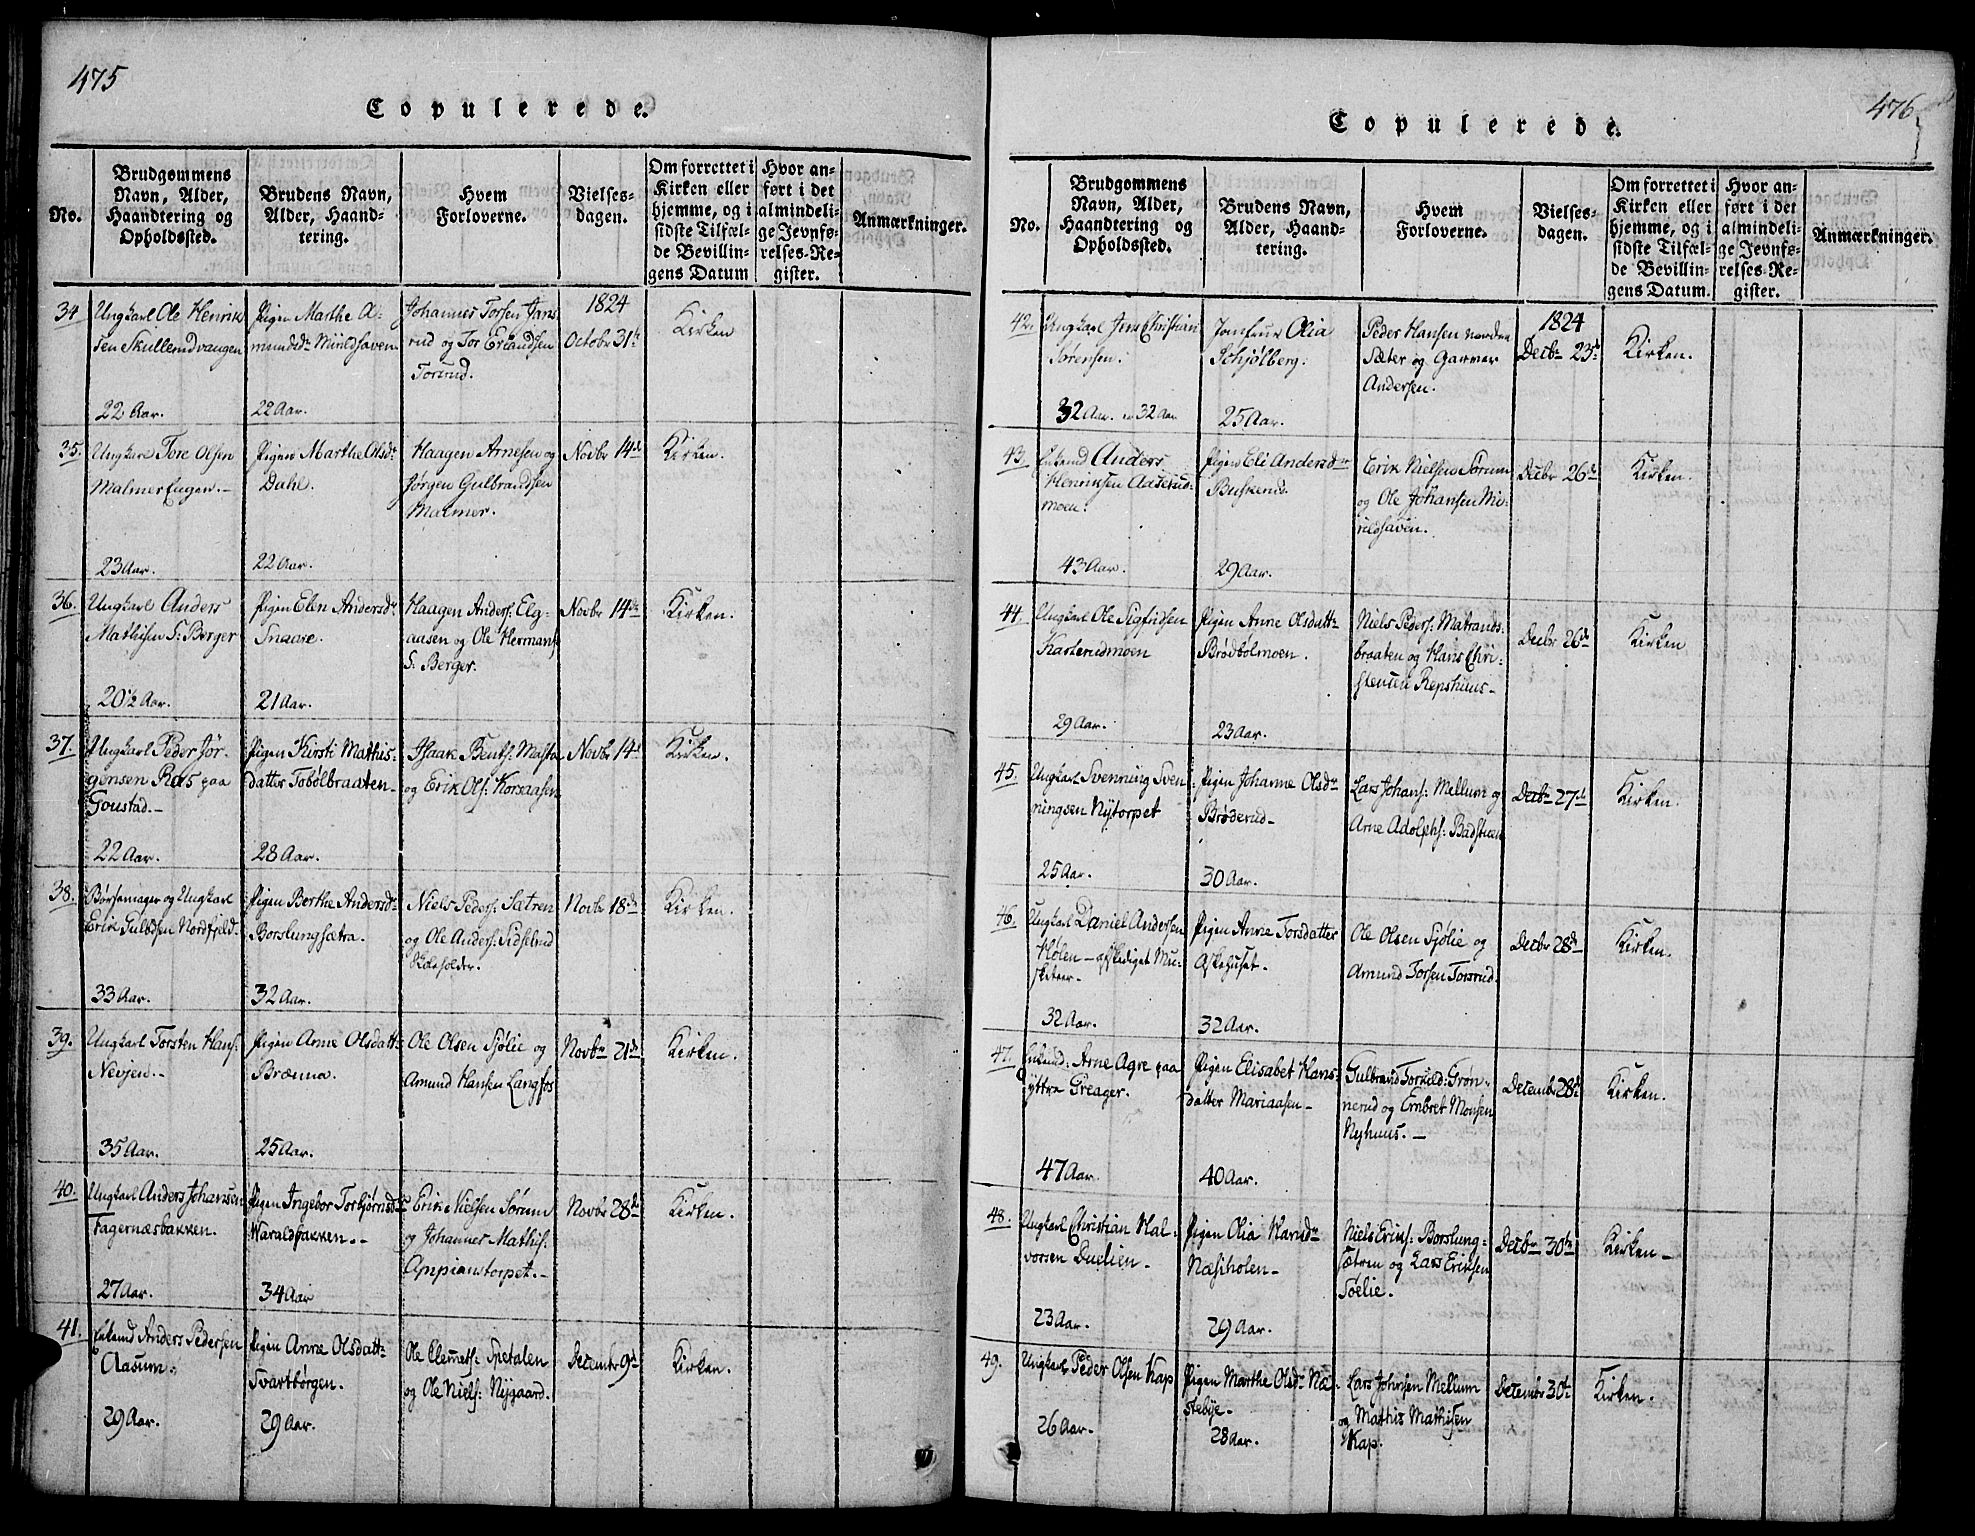 475
Copulerede.
No.
Brudgommens
Navn, Alder,
Haandtering og
Opholdssted.
Brudens Navn,
Alder, Haand-
tering.
Hvem
Forloverne.
Vielses-
dagen.
Om forrettet i
Kirken eller
hjemme, og i
sidste Tilfæl-
de Bevillin-
gens Datum
Hvor an-
ført i det
almindeli-
ge Jevnfø-
relses-Re-
gister.
Anmærkninger.
34
Ungkarl Ole Henrik
sen Skullerudvangen
22 Aar.
Pigen Marthe A-
mundsdr
22 Aar.
Johannes Torsen Jans
rud og Tor Erlandsen
Torsrud.
1824
Octobr 31te
Kirken
35.
Ungkarl Tore Olsen
Malmer Eugen.-
23 Aar.
Pigen Marthe Olsdr
Dahl.
22 Aar.
Haagen Arnesen og
Jørgen Gulbrandsen
Malmer.
Novbr 14de
Kirken.
36.
Ungkarl Anders
Mathisen S: Berger
20½ Aar.
Pigen Elen Andersdr
Snaare.
21 Aar.
Haagen Anders: Elg-
aasen og Ole Hermans
S: Berger.
Novbr 14de
Kirken.
37.
Ungkarl Peder Jør-
gensen paa
Goustad.-
22 Aar.
Pigen Kirsti Mathis-
datter Tobølbraaten-
28 Aar.
Isaak Bents: Masta
og Erik Ols: Korsaasen
Novbr 14de
Kirken.
38.
Børsemager og Ungkarl
Erik Gulbdsen Nordfjeld.
33 Aar.
Pigen Berthe Andersdr
Borslungsætra.
32 Aar.
Niels Peders: Sætren
og Ole Anders: Sidselrud
Skoleholder.
Novbr 18de
Kirken.
39.
Ungkarl Torsten Hans:
Nevjen.-
35 Aar.
Pigen Anne Olsdattr
Brænna.
25 Aar.
Ole Olsen Sjølie og
Amund Hansen Langfos
Novbr 21de
Kirken.
40.
Ungkarl Anders Johansen
Fagernæsbakken.
27 Aar.
Pigen Ingebor Torbjørnsdr
Haraldbakken.-
34 Aar
Erik Nielsen Sørum
og Johannes Mathis:
Appianstorpet.-
Novbr 28de
Kirken.
41.
Enkemd Anders Pedersen
Aasum.
29 Aar.
Pigen Anne Olsdattr
Svartbørgen.
29 Aar.
Ole Clemets: Spetalen
og Ole Niels: Nygaard.
Decembr 9de
Kirken.
476
Copulerede.
No.
Brudgommens
Navn, Alder,
Haandtering og
Opholdssted.
Brudens Navn,
Alder, Haand-
tering.
Hvem
Forloverne.
Vielses-
dagen.
Om forrettet i
Kirken eller
hjemme, og i
sidste Tilfæl-
de Bevillin-
gens Datum.
Hvor an-
ført i det
almindeli-
ge Jevnfø-
relses-Re-
gister.
Anmærkninger.
42.
Ungkarl Jens Christian
Sørensen.
32 Aar. 32 Aar
Jomfrue Olia
Schjølberg.
25 Aar.
Peder Hansen nordre
Sæter og Garver
Andersen.
1824
Decbr 23de
Kirken.
43.
Enkemd Anders
Henriksen Aaserud-
moen.
43 Aar.
Pigen Eli Andersdr
Buskerud.
29 Aar.
Erik Nielsen Sørum
og Ole Johansen
Decbr 26de
Kirken.
44.
Ungkarl Ole Sigfridsen
Kasterudmoen
29 Aar.
Pigen Anne Olsdattr
Brødbølmoen.
23 Aar.
Niels Peders: Matrands-
braaten og Hans Chri-
stensen Repshuus-
Decbr 26de
Kirken
45.
Ungkarl Svenning Sven-
ningsen Nytorpet
25 Aar.
Pigen Johanne Olsdr
Brøderud-
30 Aar.
Lars Johans: Mellum og
Arne Adolphs: Badstuen
Decbr 27de
Kirken.
46.
Ungkarl Daniel Andersen
Hølen - afskediget Mu-
sketeer.
32 Aar.
Pigen Anne Torsdatter
Askehuset.
32 Aar.
Ole Olsen Sjølie og
Amund Torsen Torsrud.
Decbr 28de
Kirken.
47.
Enkemd: Arne Agre paa
yttra Greager.
47 Aar.
Pigen Elisabet Hans-
datter Mariaasen-
40 Aar.
Gulbrand Torkild: Grøn-
nerud og Embret Monsen
Nyhuus.-
Decembr 28de
Kirken.
48.
Ungkarl Christian Hal-
vorsen Duelien-
23 Aar.
Pigen Olia Harudr
Næsiholen-
29 Aar.
Niels Eriks: Borslung-
sætren og Lars Eriksen
Soelie.
Decbr 30te
Kirken-
49.
Ungkarl Peder Olsen Kap
26 Aar.
Pigen Marthe Olsdr Næ-
stebye-
28 Aar.
Lars Johnsen Mellum
og Mathis Mathisen
Kap.
Decembr 30te
Kirken.